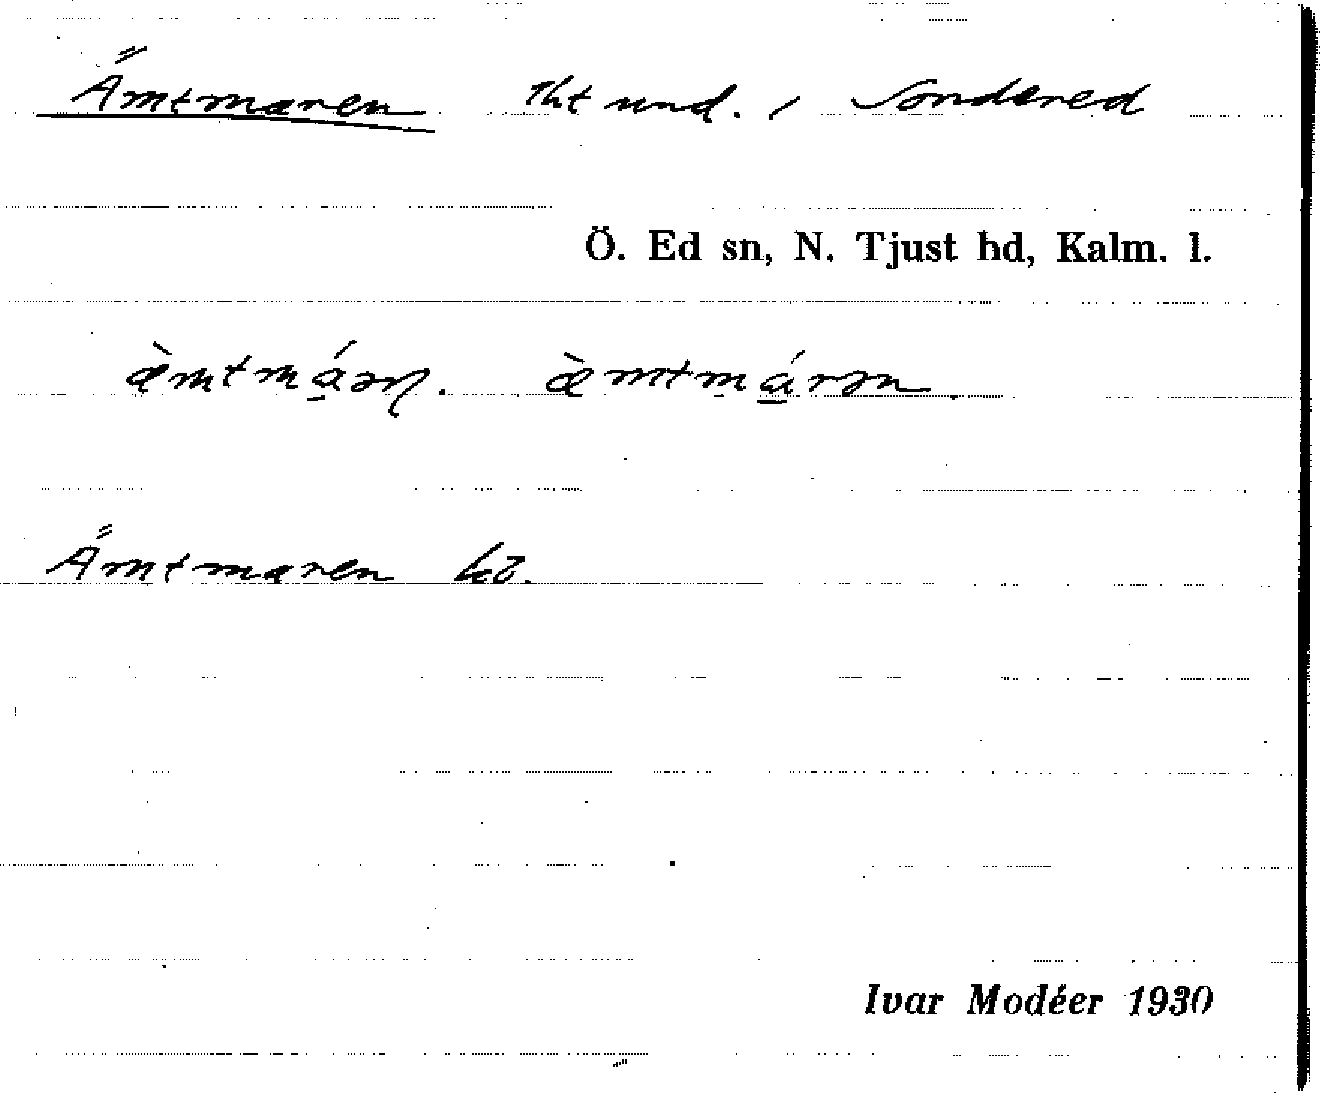 Ämtmaren tht und. i Sondered
Ö. Ed sn, N. Tjust hd, Kalm. l.
æ̀mtmá̱əɳ. æ̀mtmá̱rən
Ämtmaren kö.
Ivar Modéer 1930